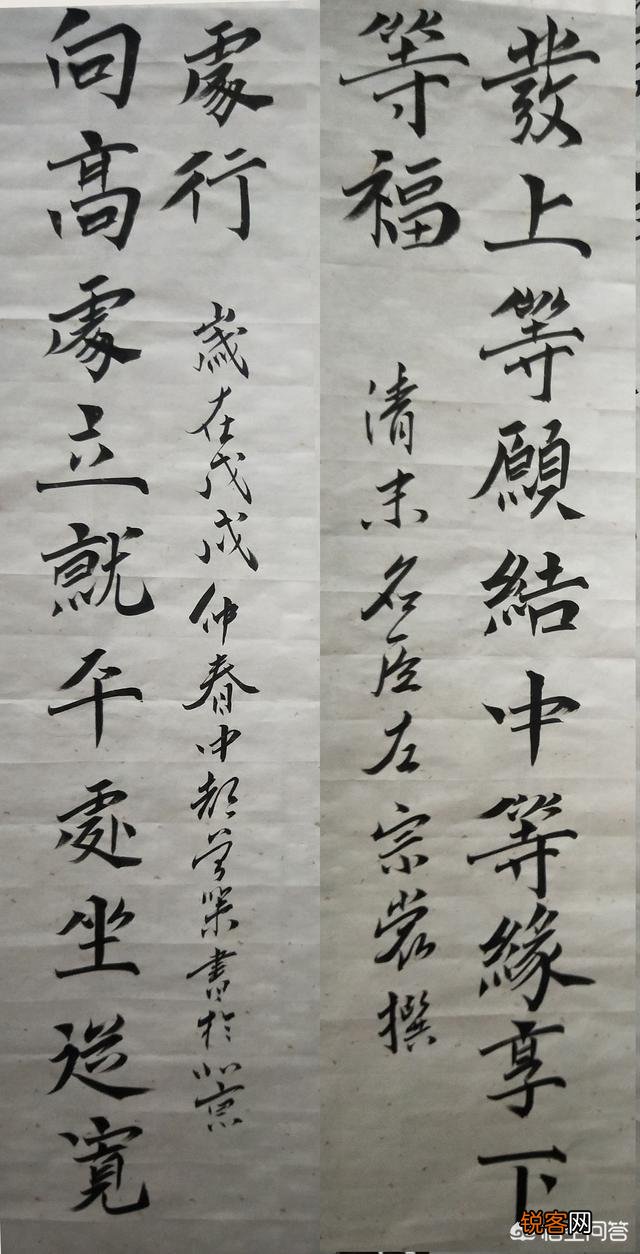 發上等願結中等緣享下
等福
清末名臣左宗棠撰
向高處立就平處坐從寬
處行
歲在戊戌仲春中都書於北京
锐客网
悟空问答